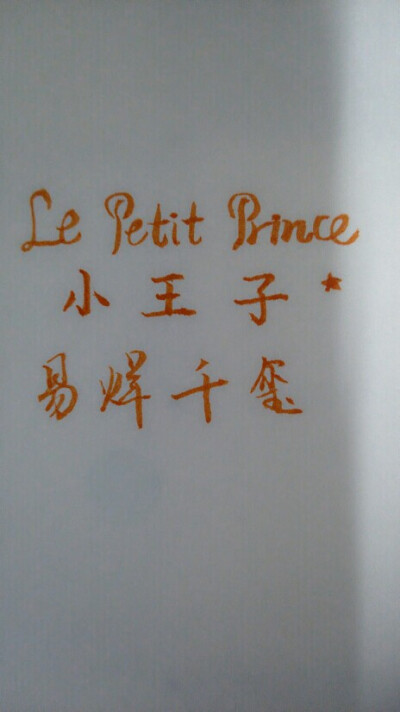 Le Petit Prince
小王子★
易烊千玺